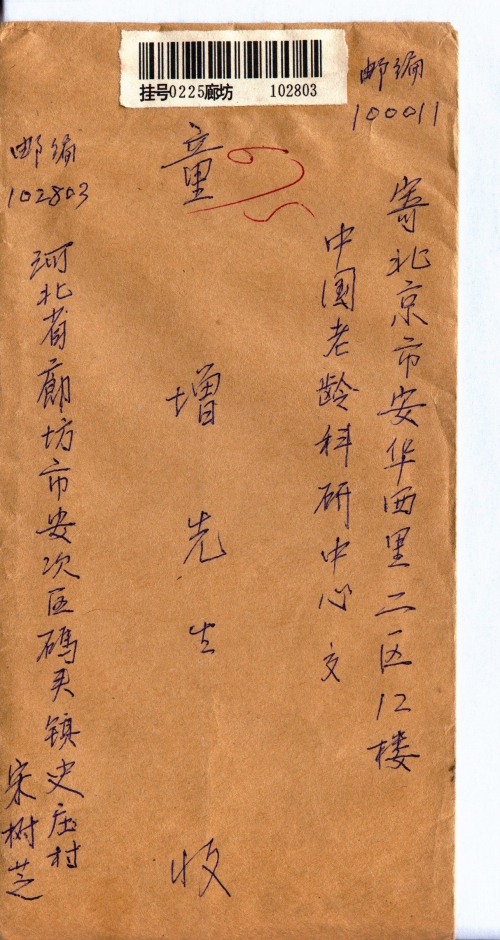 挂号0225廊坊 102803
邮编
100011
寄北京市安华西里二区12楼
中国老龄科研中心交
童增先生收
邮编
102803
河北省廊坊市安次区码头镇史庄村
宋树芝